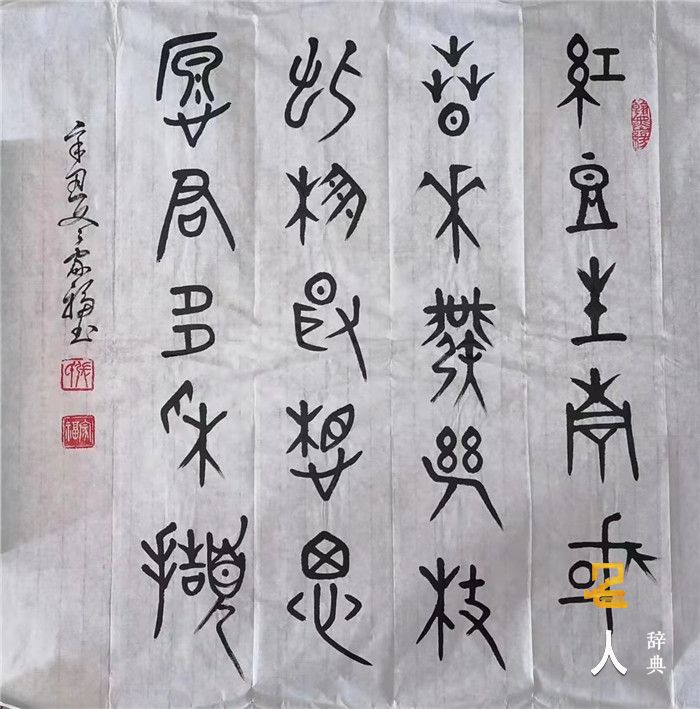 紅豆生南國
春來發幾枝
此物最相思
願君多采擷
辛丑冬家福書
家福
名人
辞典